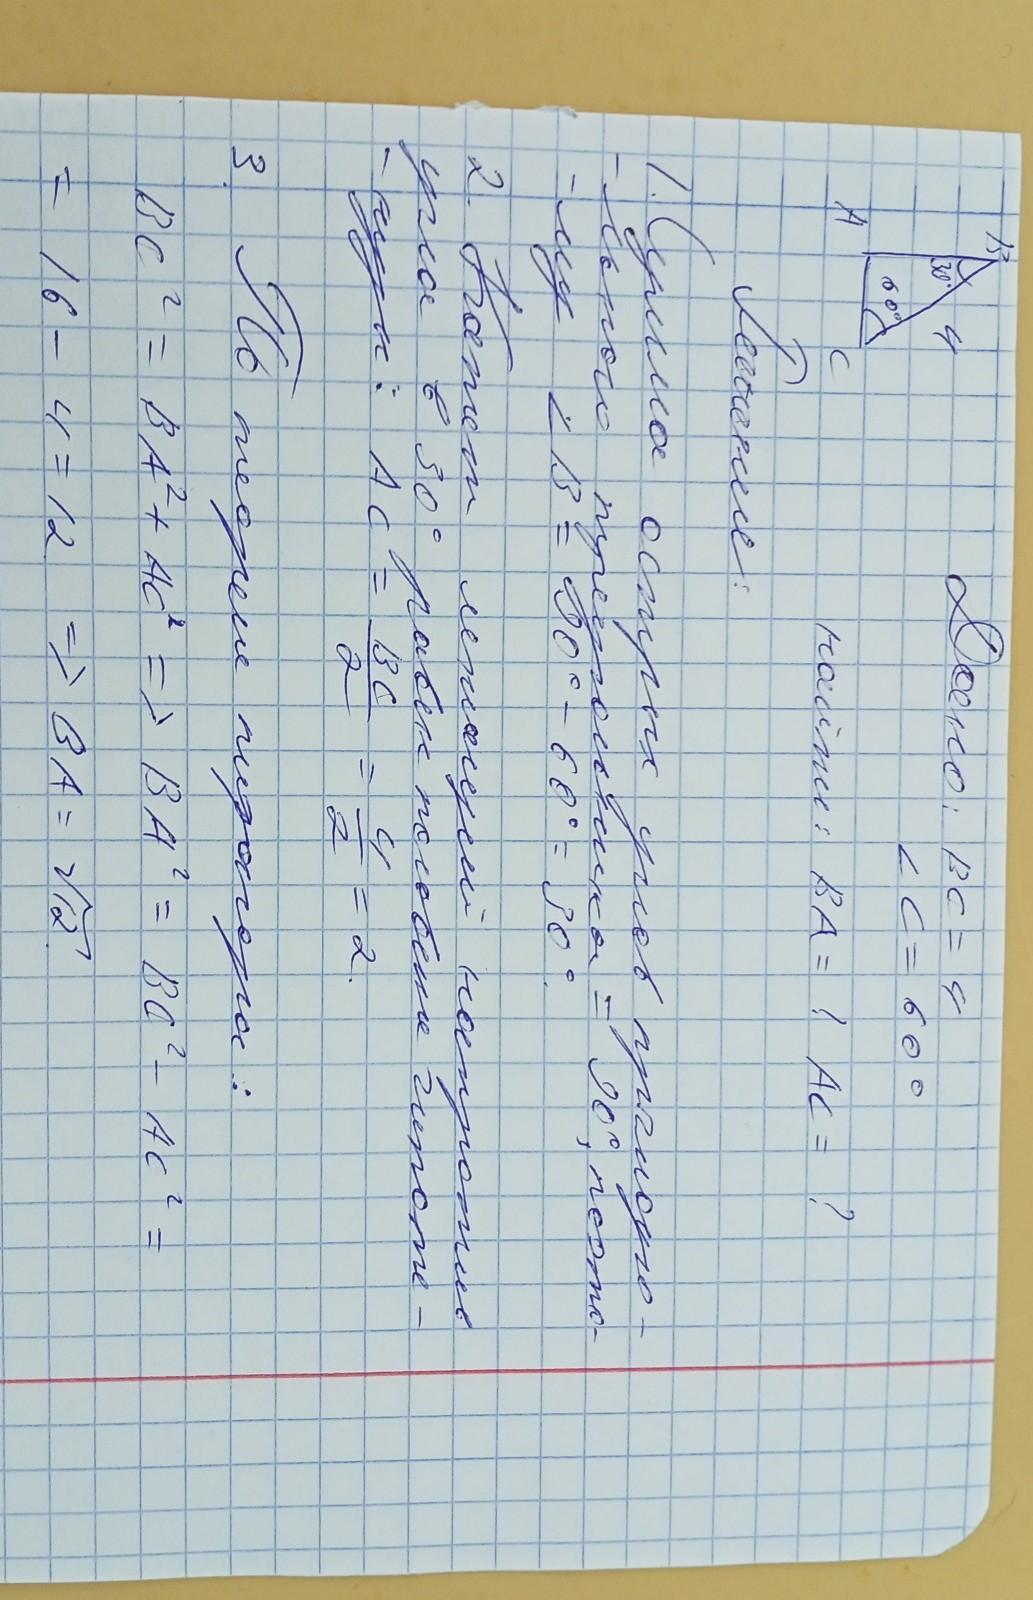 B
30°
4
60°
A
C
Дано: BC = 4
∠ C = 60°
Найти: BA = ? AC = ?
Решение:
1. Сумма острых углов прямоуго-
- льного треугольника = 90°, поэто-
- му ∠ B = 90° - 60° = 30°.
2. Катет лежащий напротив
угла в 30° равен половине гипоте-
- нузы: AC = BC/2 = 4/2 = 2.
3. По теореме пифагора:
BC² = BA² + AC² => BA² = BC² - AC² =
= 16 - 4 = 12 => BA = √12